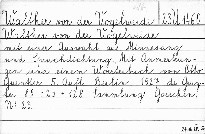 Walther von der Vogelweide 23/I 1460
Walther von der Vogelweide
mit einer Auswahl aus Minnesang
und Spruchdichtung. Mit Anmerkun-
gen und einem Wörterbuch von Otto
Güntter 5. Aufl. Berlin 1927 de Gruy-
ter 8º - 23 - 128 Sammlung Göschen
Nr 23